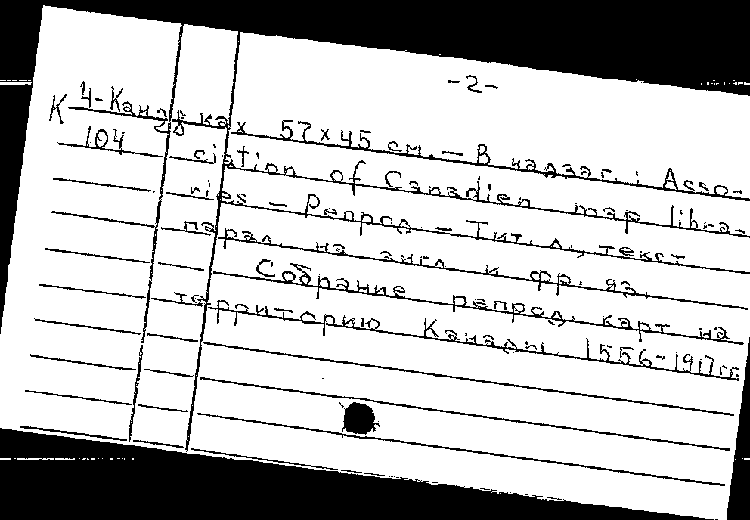 -2-
К 4-Кана-
28
104
ках 57×45 см. — В надзаг.: Asso-
ciation of Canadien map libra-
ries — Репрод. — Тит. л., текст
парал. на англ. и фр. яз.
Собрание репрод. карт на
территорию Канады 1556-1917 гг.